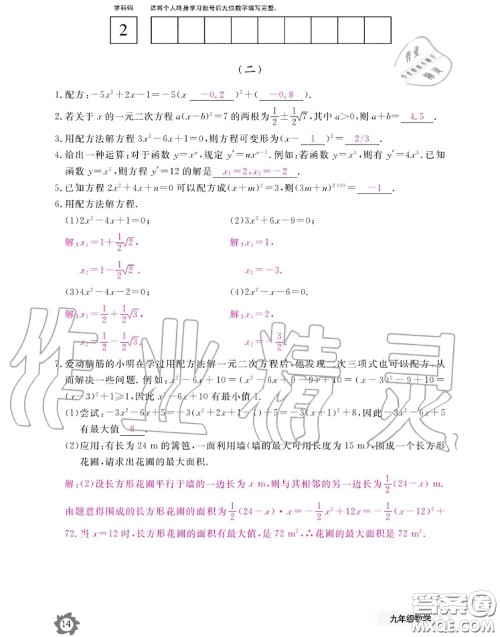 学科码 请将个人终身学习账号后九位数字填写完整。
2
(二)
1.配方:-5x²+2x-1=-5(x -0.2 )²+( -0.8 ).
2.若关于 x 的一元二次方程 a(x-b)²=7 的两根为 1/2±1/2√7,其中 a>0,则 a+b= 4.5 .
3.用配方法解方程 3x²-6x+1=0,则方程可变形为(x- 1 )²= 2/3 .
4.给出一种运算:对于函数 y=xⁿ,规定 y′=nxⁿ⁻¹.例如:若函数 y=x⁴,则有 y′=4x³.已知
函数 y=x³,则方程 y′=12 的解是 x₁=2,x₂=-2 .
5.已知方程 2x²+4x+n=0 可以配方成(x+m)²=3,则(mn)²⁰¹⁹= -1 .
6.用配方法解方程.
(1)2x²-4x+1=0; (2)3x²+6x-9=0;
解:x₁=1+1/2√2, 解:x₁=1,
x₂=1-1/2√2. x₂=-3.
(3)4x²-4x-2=0; (4)2x²-x-6=0.
解:x₁=1/2+1/2√3, 解:x₁=2,
x₂=1/2-1/2√3. x₂=-3/2.
7.爱动脑筋的小明在学过用配方法解一元二次方程后,他发现二次三项式也可以配方,从
而解决一些问题.例如:x²-6x+10=(x²-6x+9-9)+10=(x-3)²-9+10=
(x-3)²+1≥1,因此 x²-6x+10 有最小值 1.
(1)尝试:-3x²-6x+5=-3(x²+2x+1-1)+5=-3(x+1)²+8,因此-3x²-6x+5
有最大值 8 .
(2)应用:有长为 24 m 的篱笆,一面利用墙(墙的最大可用长度为 15 m),围成一个长方形
花圃,请求出花圃的最大面积.
解:(2)设长方形花圃平行于墙的一边长为 x m,则与其相邻的另一边长为 1/2(24-x) m.
由题意得围成的长方形花圃的面积为 1/2(24-x)·x=-1/2x²+12x=-1/2(x-12)²+
72.当 x=12时,长方形花圃的面积有最大值,是 72 m²,∴花圃的最大面积是 72 m².
作业精灵
14
九年级数学